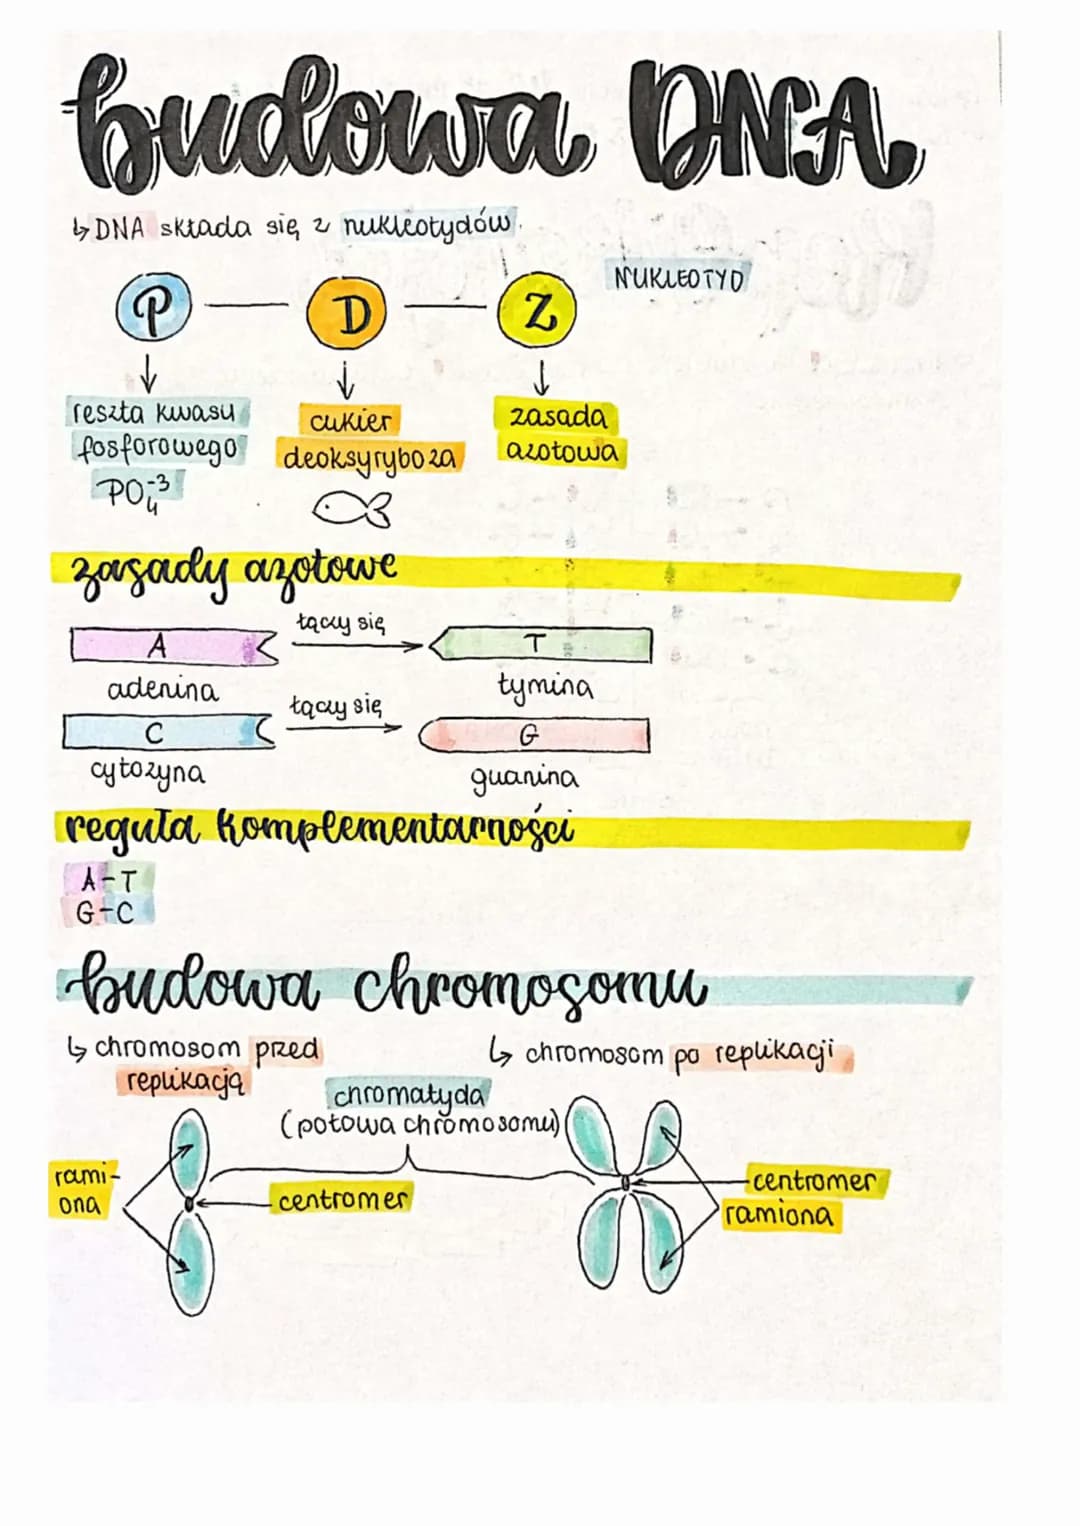 budowa DNA
↳ DNA składa się z nukleotydów.
NUKLEOTYD
P — D — Z
reszta kwasu
fosforowego
PO₄⁻³
cukier
deoksyryboza
zasada
azotowa
zasady azotowe
A łączy się T
adenina tymina
C łączy się G
cytozyna guanina
reguła komplementarności
A-T
G-C
budowa chromosomu
↳ chromosom przed
replikacją
↳ chromosom po replikacji
chromatyda
(połowa chromosomu)
rami-
ona
centromer
centromer
ramiona